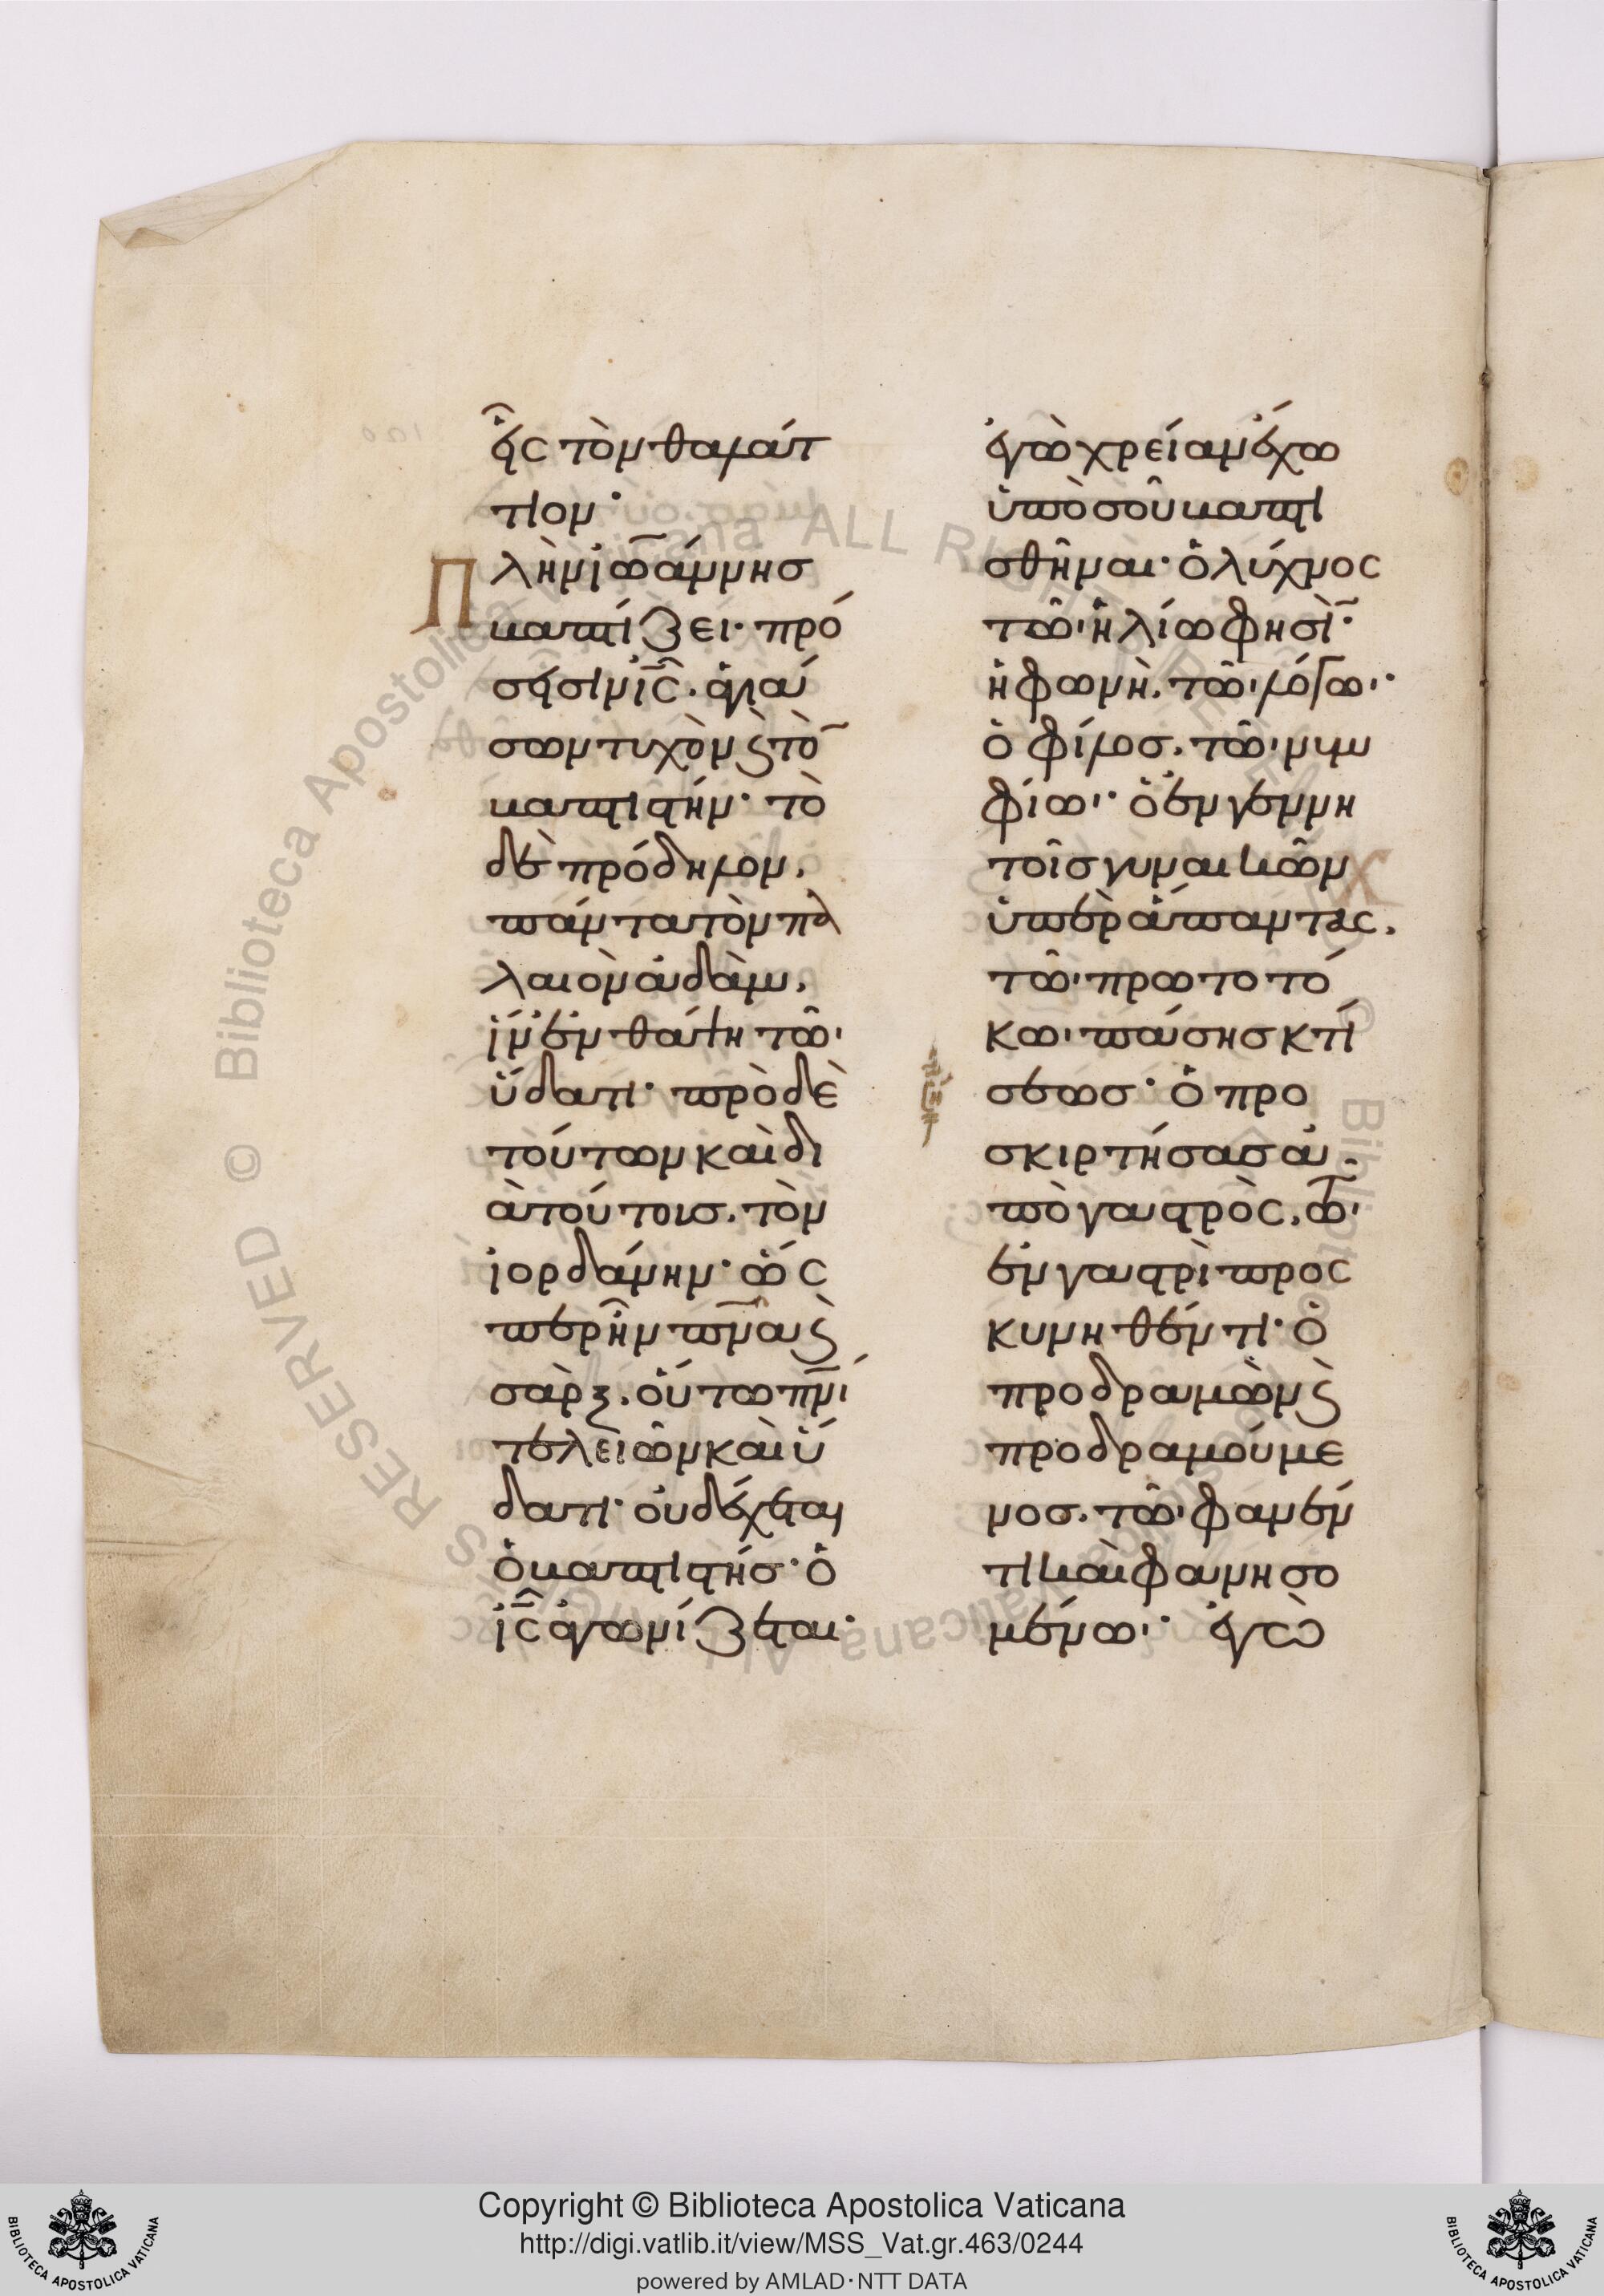 ἧς τὸν θάνατ
τιον·
Πλὴν ἰω̅άννησ
βαπτίζει· πρό
σεσιν ι̅ς̅. ἁγιά
σων τυχὸν ϛ τὸ̅
βαπτιστήν· τὸ
δὲ πρόδηλον,
πάντα τὸν πα
λαιὸν ἀδὰμ,
ἵν' ἐνθάψη τῶι
ὕδατι· πρὸ δὲ
τούτων καὶ δι
ὰ τούτοισ. τὸν
ἰορδάνην· ὥς
περ ἦν π̅ν̅α ϛ
σὰρξ. οὕτω π̅ν̅ι
τελειῶν καὶ ὕ
δατι· οὐ δέχεται
ὁ βαπτιστήσ· ὁ
ι̅ς̅ ἀγωνίζεται·
ἐγὼ χρείαν ἔχω
ὑπὸ σοῦ βαπτι
σθῆναι· ὁ λύχνος
τῶι ἡλίω φησὶ̅·
ἡ φωνὴ. τῶι λόγωι·
ὁ φίλοσ. τῶι νυμ
φίωι· ὁ ἐν γεννη
τοῖσ γυναικῶν
ὑπὲρ ἅπαντας.
τῶι πρωτοτό
κωι πάσησ κτί
σεωσ· ὁ προ
σκιρτήσασ ἀ
πὸ γαστρὸς. τῶι
ἐν γαστρὶ προς
κυνηθέντι· ὁ
προδραμὼν ϛ
προδραμούμε
νοσ. τῶι φανέν
τι καὶ φανησο
μένωι· ἐγὼ
Copyright © Biblioteca Apostolica Vaticana
http://digi.vatlib.it/view/MSS_Vat.gr.463/0244
powered by AMLAD·NTT DATA
BIBLIOTECA APOSTOLICA VATICANA
BIBLIOTECA APOSTOLICA VATICANA